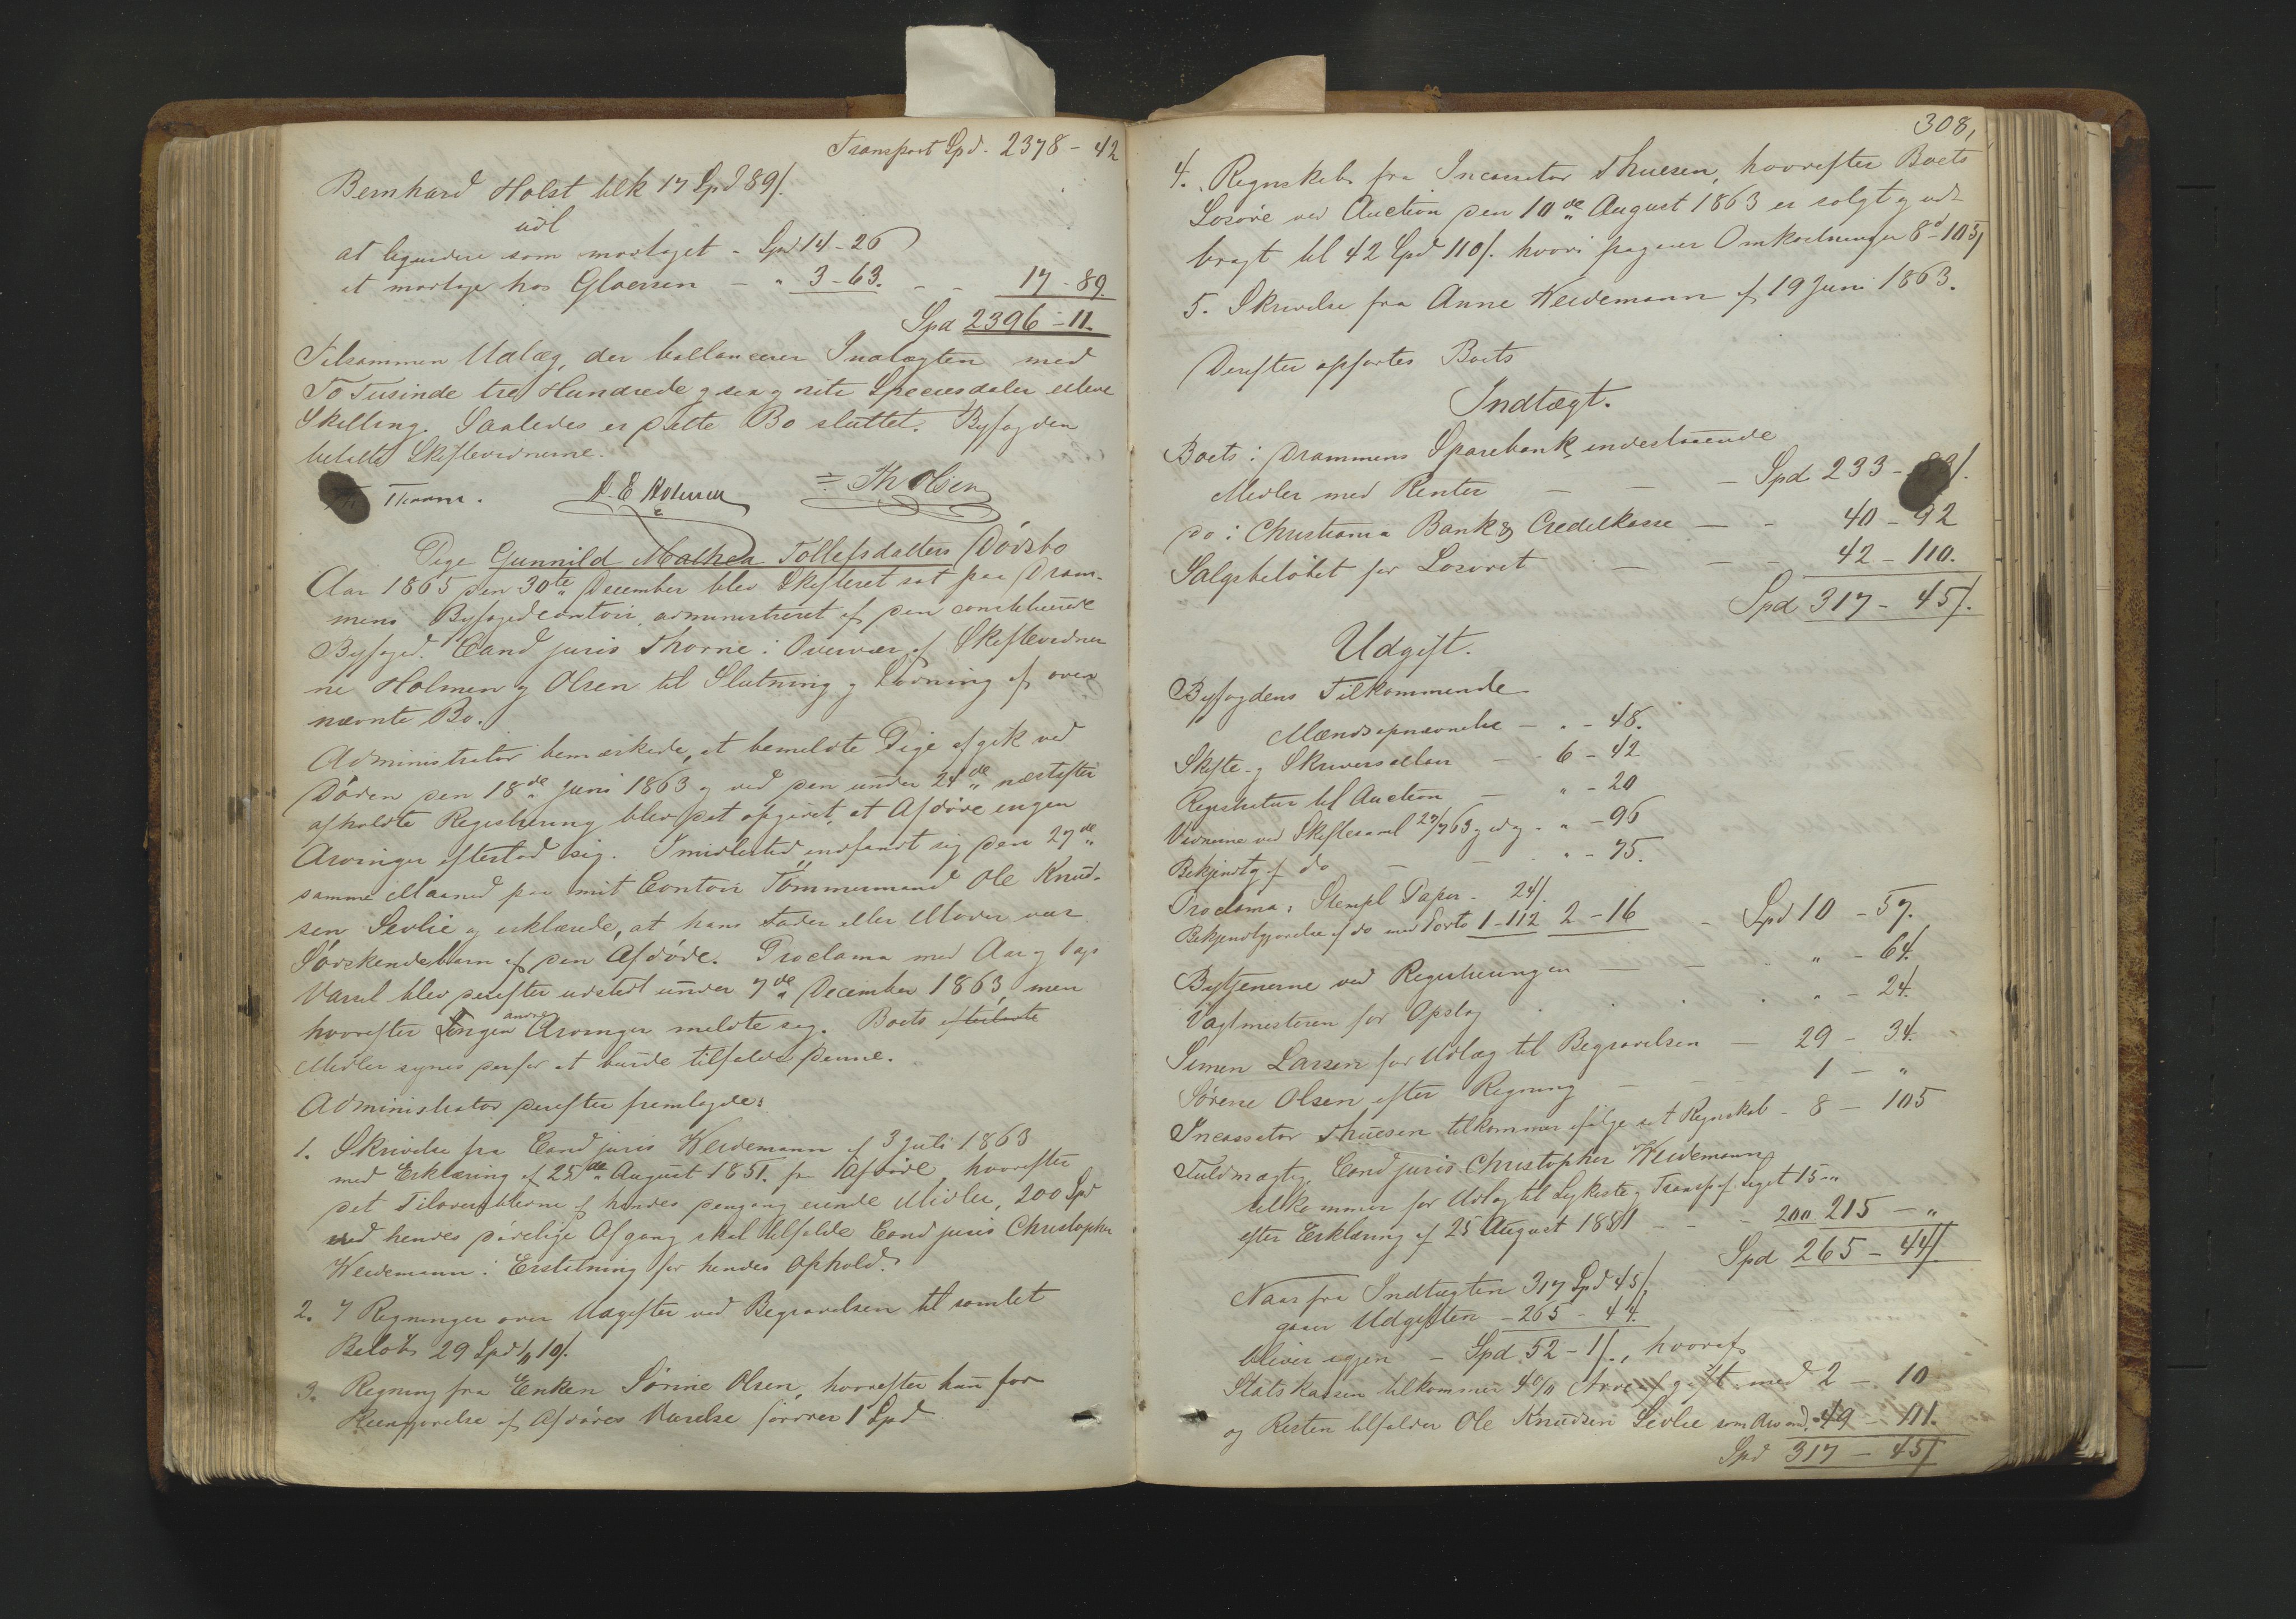 Transport Spd. 2378 - 42
Bernhard Holst tilk 17 Spd 89/.
udl
at liqvidere som modtaget - Spd 14 - 26
at modtage hos Gloersen - " 3 - 63. - - 17 - 89.
Spd 2396 - 11.
Tilsammen Udlæg, der ballancerer Indtægten med
To Tusinde tre Hundrede og sex og niti Speciesdaler elleve
Skilling. Saaledes er dette Bo sluttet. Byfogden
betalte Skiftevidnerne.
Thorne. Th Olsen
Pige Gunnild Mathea Tollefsdatters Dödsbo
Aar 1865 den 30te December blev Skifteret sat paa Dram-
mens Byfogedcontoir, administreret af den constituerede
Byfoged Cand juris Thorne i Overvær af Skiftevidner
ne Holmen og Olsen til Slutning og Lodning af oven
nævnte Bo.
Administrator bemærkede, at bemeldte Pige afgik ved
Döden den 18de Juni 1863 og ved den under 24de næstefter
afholdte Registrering blev det opgivet, at Afdöde ingen
Arvinger efterlod sig. Imidlertid indfandt sig den 27de
samme Maaned paa mit Contoir Tömmermand Ole Knud-
sen Sevlie og erklærede, at hans Fader eller Moder var
Södskendebarn af den Afdöde. Proclama med Aar og Dags
Varsel blev derefter udstedt under 7de December 1863, men
hvorefter Ingen andre Arvinger meldte sig. Boets efterladte
Midler synes derfor at burde tilfalde denne.
Administrator derefter fremlagde:
1. Skrivelse fra Cand juris Weidemann af 3 Juli 1863
med Erklæring af 25de August 1851. fra Afdöde, hvorefter
det Tiloversblevne af hendes dengang eiende Midler, 200 Spd
ved hendes dödelige Afgang skal tilfalde Cand juris Christopher
Weidemann i Erstatning for hendes Ophold.
2. 7 Regninger over Udgifter ved Begravelsen til samlet
Belöb 29 Spd 10/.
3. Regning fra Enken Sörine Olsen, hvorefter hun for
Reengjörelse af Afdödes Værelse fordrer 1 Spd
308,
4. Regnskab fra Incassator Thuesen, hvorefter Boets
Lösöre ved Auction den 10de August 1863 er solgt og ud-
bragt til 42 Spd 110/. hvori fragaaer Omkostninger 8d - 105/
5. Skrivelse fra Anne Weidemann af 19 Juni 1863.
Derefter opförtes Boets
Indtægt.
Boets i Drammens Sparebank indestaaende
Midler med Renter - - - Spd 233 -
do i Christiania Bank & Creditkasse - - 40 - 92
Salgsbelöbet for Lösöret - - - 42 - 110.
Spd 317 - 45/.
Udgift.
Byfogdens Tilkommende
Mændsopnævnelse - " - 48.
Skifte- og Skriversallær - - 6 - 42
Registratur til Auction - " - 20
Vidnerne ved Skiftesaml 27/7 63 og idag - " - 96
Bekjendtg af do - - " - 75.
Proclama: Stempl Papir - 24/.
Bekjendtgjörelse af do med Porto 1 - 112 2 - 16 - Spd 10 - 57.
Bytjenerne ved Registreringen - - " - 64.
Vagtmesteren for Opslag . . . " - 24.
Simen Larsen for Udlæg til Begravelsen - 29 - 34.
Sörine Olsen efter Regning - - - 1 - "
Incassator Thuesen tilkommer ifölge Regnskab - 8 - 105
Fuldmægtig Cand juris Christopher Weidemann
tilkommer for Udlæg til Ligkiste og Transp af Liget 15 - "
efter Erklæring af 25 August 1851 - - - 200. 215 - "
Spd 265 - 44/.
Naar fra Indtægten 317 Spd 45/
gaaer Udgiften - 265 - 44.
bliver igjen - Spd 52 - 1/., hvoraf
Statskassen tilkommer 4% Arveafgift med 2 - 10
og Resten tilfalder Ole Knudsen Sevlie som Arv med 49 - 111.
Spd 317 - 45/